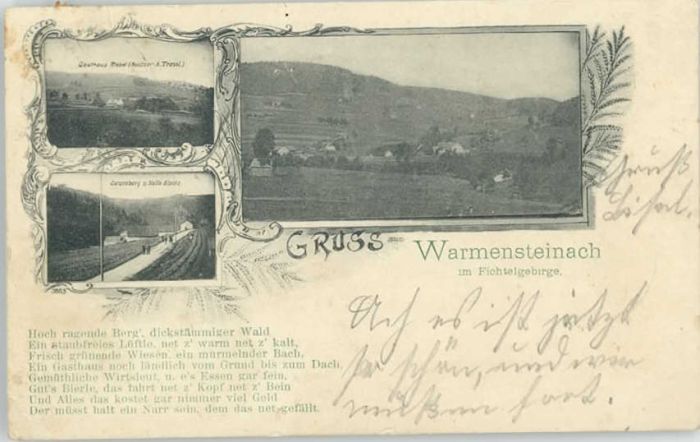 Gasthaus Mabel (Besitzer A. Trassl.)
GRUSS aus Warmensteinach
im Fichtelgebirge.
3863
Gruß
Hoch ragende Berg', dickstämmiger Wald
Ein staubfreies Lüftle, net z' warm net z' kalt,
Frisch grünende Wiesen, ein murmelnder Bach,
Ein Gasthaus noch ländlich vom Grund bis zum Dach,
Gemüthliche Wirtsleut, u. e's Essen gar fein,
Gut's Bierle, das fahrt net z' Kopf net z' Bein
Und Alles das kostet gar nimmer viel Geld
Der müsst halt ein Narr sein, dem das net gefällt.
Ach es ist jetzt
so schön, und wir
müßen fort.